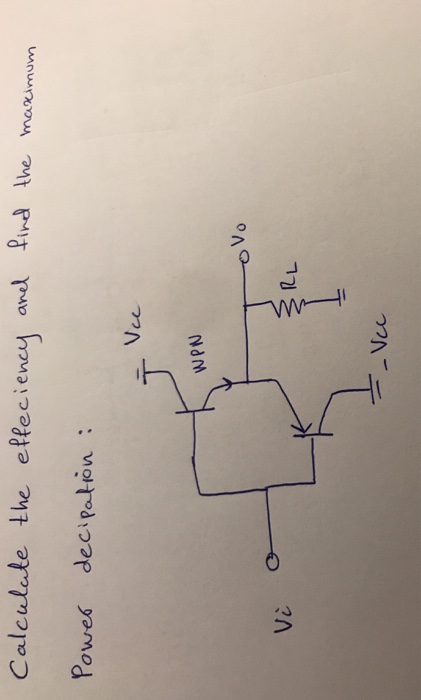 Calculate the effeciency and find the maximum
Power decipation :
Vcc
NPN
Vo
RL
Vi
- Vcc